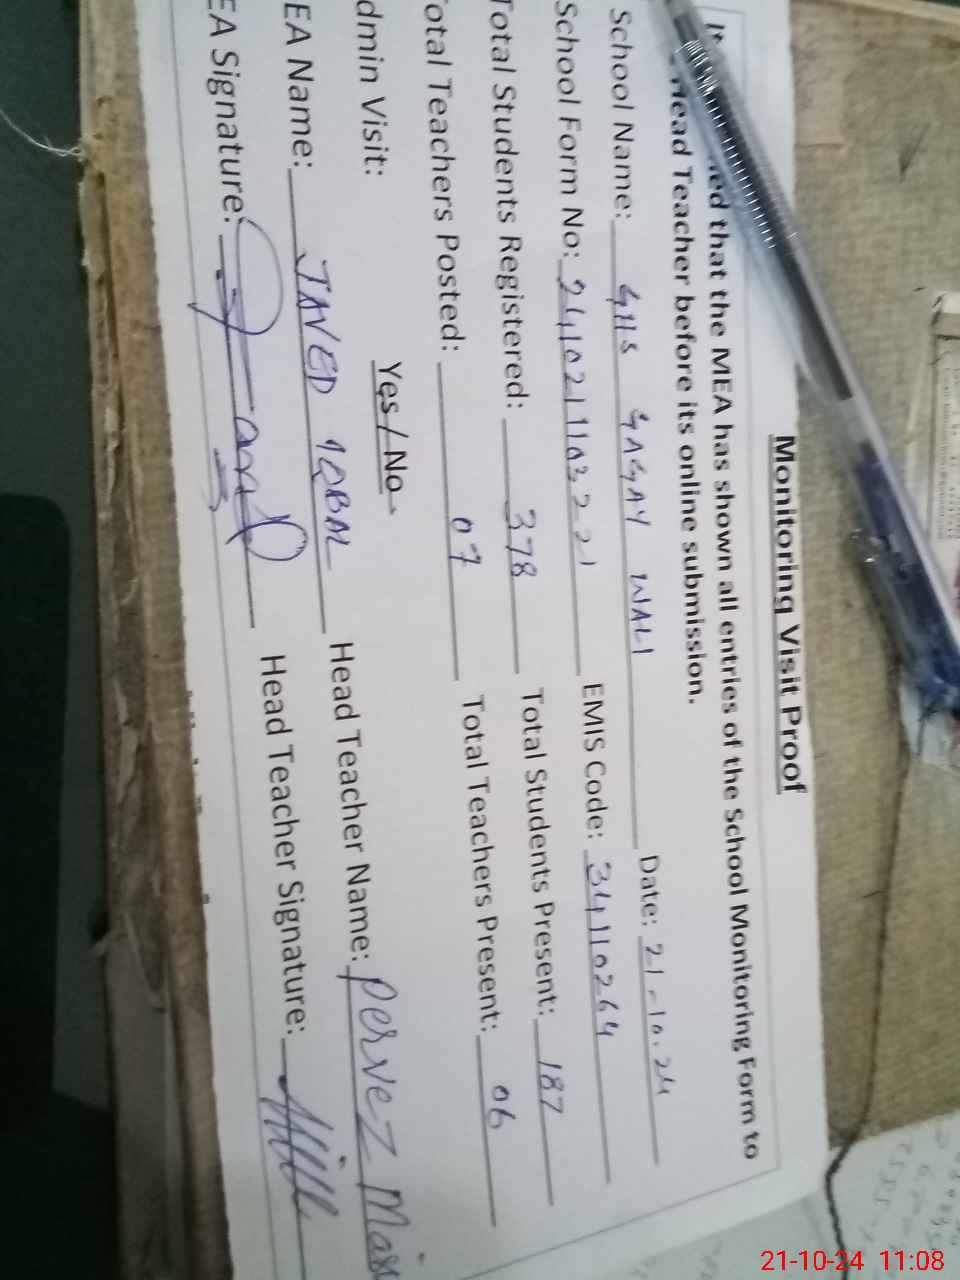 Monitoring Visit Proof
It ed that the MEA has shown all entries of the School Monitoring Form to
Head Teacher before its online submission.
School Name: GHS GAGAY WALI Date: 21-10.24
School Form No: 2410211103221 EMIS Code: 34110264
Total Students Registered: 378 Total Students Present: 187
otal Teachers Posted: 07 Total Teachers Present: 06
dmin Visit: Yes / No
EA Name: JAVED IQBAL Head Teacher Name: Pervez
EA Signature: Head Teacher Signature:
21-10-24 11:08